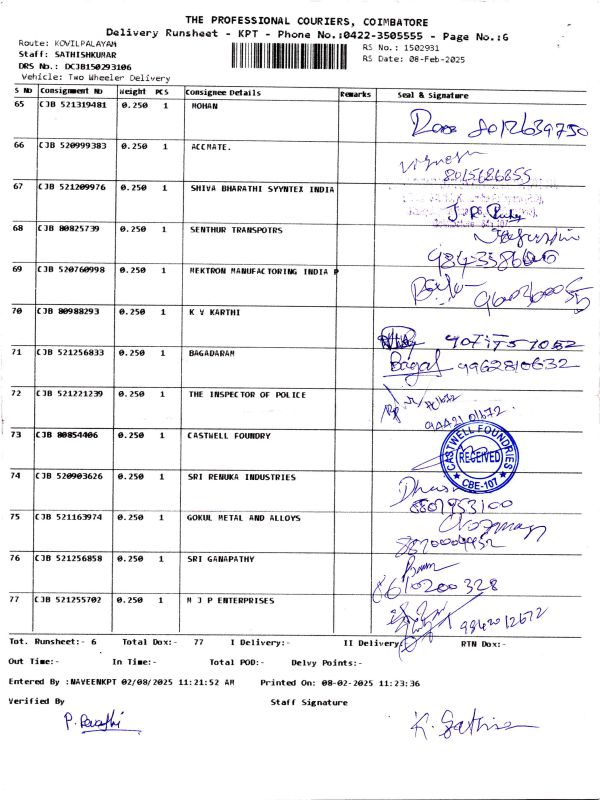 THE PROFESSIONAL COURIERS, COIMBATORE
Delivery Runsheet - KPT - Phone No.:0422-3505555 - Page No.:6
Route: KOVILPALAYAM
RS No.: 1502931
Staff: SATHISHKUMAR
RS Date: 08-Feb-2025
DRS No.: DCJB150293106
Vehicle: Two Wheeler Delivery
S No Consignment No Weight PCS Consignee Details Remarks Seal & Signature
65 CJB 521319481 0.250 1 MOHAN
8012639750
66 CJB 520999383 0.250 1 ACCMATE.
Vignesh
8015686855
67 CJB 521209976 0.250 1 SHIVA BHARATHI SYYNTEX INDIA
68 CJB 80825739 0.250 1 SENTHUR TRANSPOTRS
69 CJB 520760998 0.250 1 MEKTRON MANUFACTORING INDIA P
70 CJB 80988293 0.250 1 K V KARTHI
71 CJB 521256833 0.250 1 BAGADARAM
Bagad 9962810632
72 CJB 521221239 0.250 1 THE INSPECTOR OF POLICE
73 CJB 80854406 0.250 1 CASTWELL FOUNDRY
CASTWELL FOUNDRIES
RECEIVED
CBE-107
74 CJB 520903626 0.250 1 SRI RENUKA INDUSTRIES
8807953100
75 CJB 521163974 0.250 1 GOKUL METAL AND ALLOYS
76 CJB 521256858 0.250 1 SRI GANAPATHY
77 CJB 521255702 0.250 1 M J P ENTERPRISES
9842012672
Tot. Runsheet:- 6 Total Dox:- 77 I Delivery:- II Delivery: RTN Dox:-
Out Time:- In Time:- Total POD:- Delvy Points:-
Entered By :NAVEENKPT 02/08/2025 11:21:52 AM Printed On: 08-02-2025 11:23:36
Verified By Staff Signature
P. Revathi K. Sathis